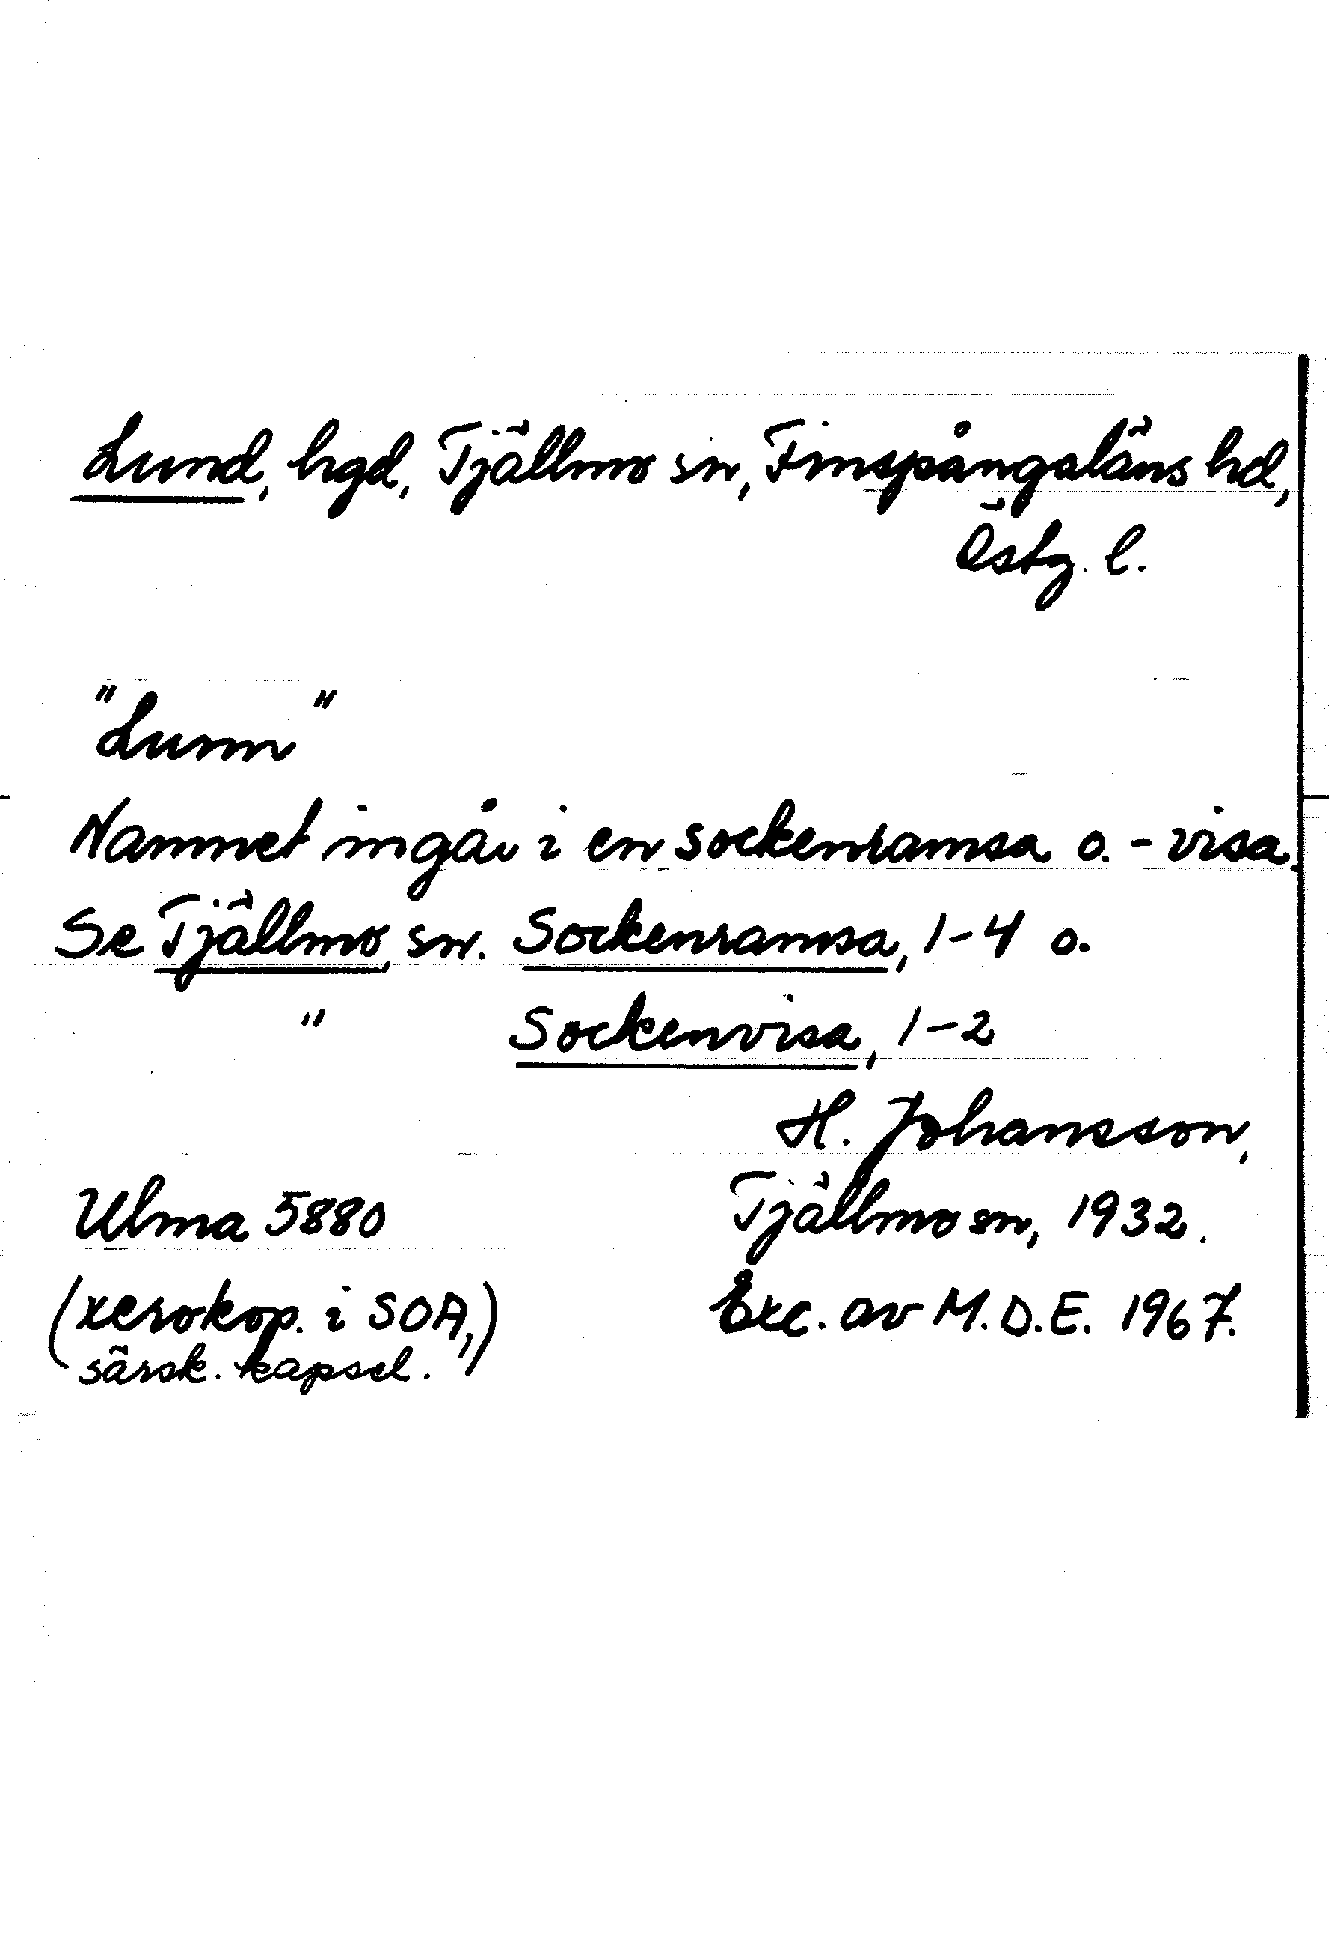 Lund, hgd, Tjällmo sn, Finspångaläns hd,
Östg. l.
"Lunn"
Namnet ingår i en sockenramsa o. - visa.
Se Tjällmo sn. Sockenramsa, 1-4 o.
" Sockenvisa, 1-2
H. Johansson,
Ulma 5880 Tjällmo sn, 1932.
(xerokop. i SOA, Exc. av M.D.E. 1967.
särsk. kapsel.)